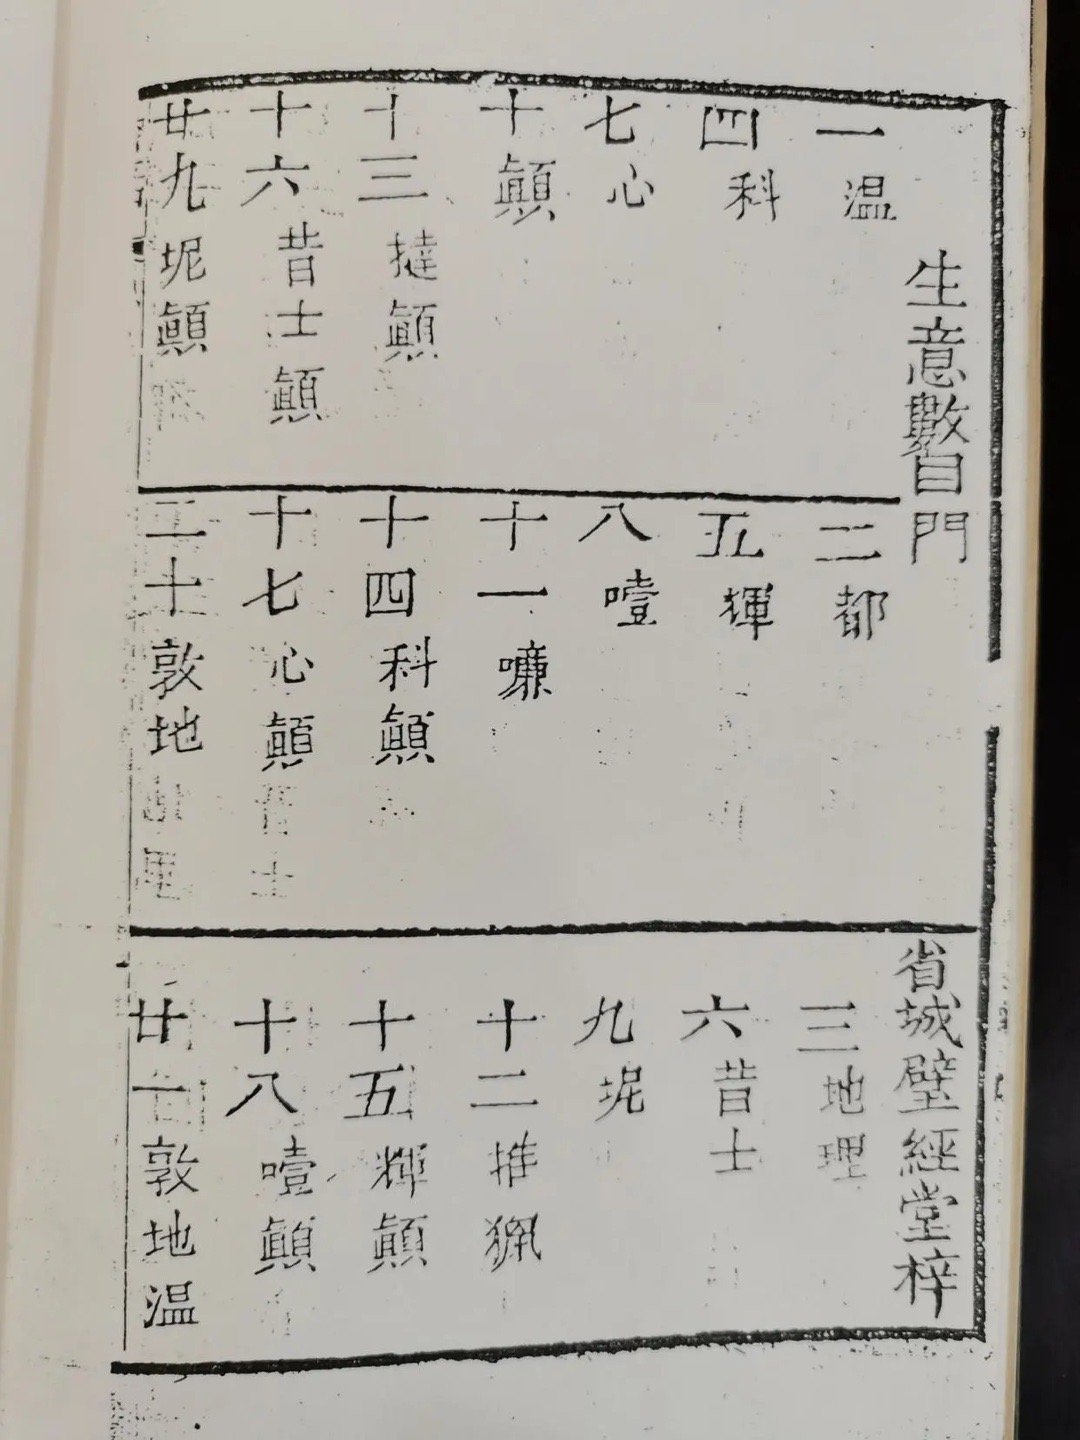 生意數目門
省城璧經堂梓
一温
二都
三地理
四科
五揮
六昔士
七心
八噎
九坭
十顛
十一嚹
十二推猟
十三撻顛
十四科顛
十五輝顛
十六昔士顛
十七心顛
十八噎顛
廿九坭顛
二十敦地
廿一敦地温